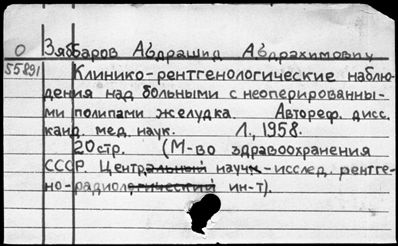 О Зяббаров Абдрашид Абдрахимович
55891 Клинико-рентгенологические наблю-
дения над больными с неоперированны-
ми полипами желудка. Автореф. дисс.
канд. мед. наук. Л., 1958.
20 стр. (М-во здравоохранения
СССР. Центральный научн-исслед. рентге-
но-радиологический ин-т).